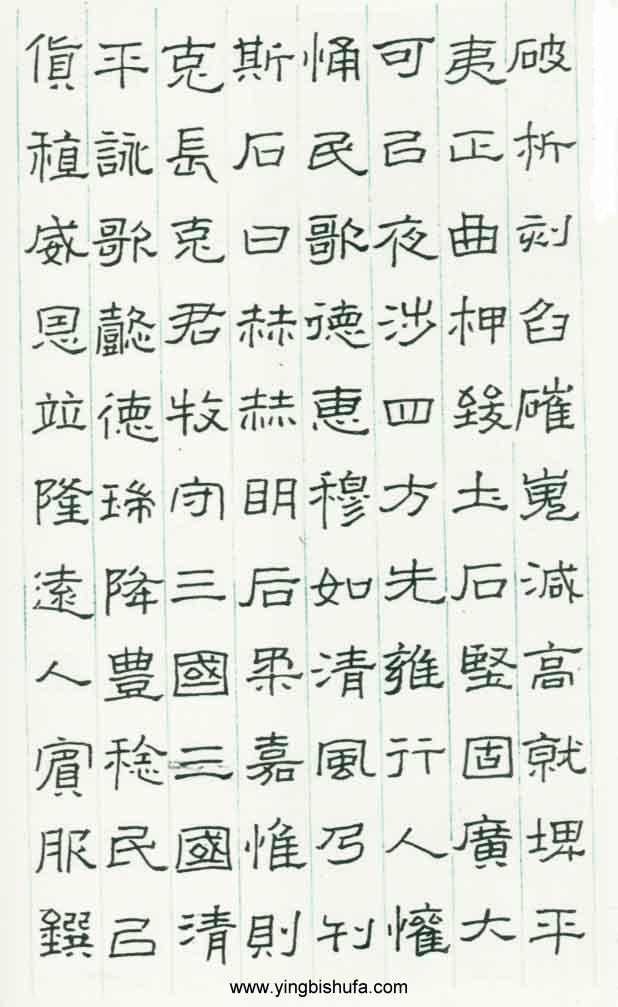 破析刻臽磪嵬減高就埤平
夷正曲柙致土石堅固廣大
可㠯夜涉四方无雍行人懽
悀民歌德惠穆如清風乃刊
斯石曰赫赫明后柔嘉惟則
克長克君牧守三國三國清
平詠歌懿德瑞降豊稔民㠯
貨稙威恩竝隆遠人賓服鐉
www.yingbishufa.com